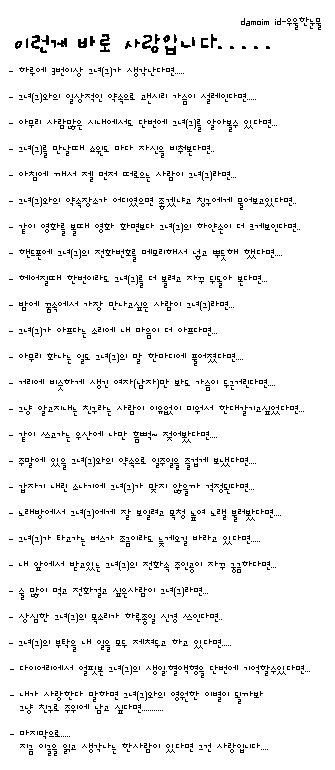 damoim id-우울한눈물
이런게 바로 사랑입니다.....
- 하루에 3번이상 그녀(그)가 생각난다면.....
- 그녀(그)와의 일상적인 약속으로 괜시리 가슴이 설레인다면.....
- 아무리 사람많은 시내에서도 단번에 그녀(그)를 알아볼수 있다면...
- 그녀(그)를 만날때 쇼윈도 마다 자신을 비춰본다면..
- 아침에 깨서 젤 먼저 떠오르는 사람이 그녀(그)라면...
- 그녀(그)와의 약속장소가 어디였으면 좋겠냐고 친구에게 물어보고있다면..
- 같이 영화를 볼때 영화 화면보다 그녀(그)의 하얀손이 더 크게보인다면..
- 핸드폰에 그녀(그)의 전화번호를 메모리해서 넣고 뿌듯해 했다면....
- 헤어질때 한번이라도 그녀(그)를 더 볼려고 자꾸 뒤돌아 본다면...
- 밤에 꿈속에서 가장 만나고싶은 사람이 그녀(그)라면...
- 그녀(그)가 아프다는 소리에 내 마음이 더 아프다면...
- 아무리 화나는 일도 그녀(그)의 말 한마디에 풀어졌다면....
- 거리에 비슷하게 생긴 여자(남자)만 봐도 가슴이 두근거린다면....
- 그냥 알고지내는 친구라는 사람이 이유없이 미워서 한대갈기고싶었다면...
- 같이 쓰고가는 우산에 나만 흠뻑~ 젖어봤다면....
- 주말에 있을 그녀(그)와의 약속으로 일주일을 즐겁게 보냈다면....
- 갑자기 내린 소나기에 그녀(그)가 맞지 않을까 걱정된다면....
- 노래방에서 그녀(그)에게 잘 보일려고 목청 높여 노래 불러봤다면....
- 그녀(그)가 타고가는 버스가 조금이라도 늦게오길 바라고 있다면.....
- 내 앞에서 받고있는 그녀(그)의 전화속 주인공이 자꾸 궁금하다면...
- 술 많이 먹고 전화걸고 싶은사람이 그녀(그)라면...
- 상심한 그녀(그)의 목소리가 하루종일 신경 쓰인다면..
- 그녀(그)의 부탁을 내 일을 모두 제쳐두고 하고 있다면.....
- 다이어리에서 얼핏본 그녀(그)의 생일,혈액형을 단번에 기억할수있다면...
- 내가 사랑한다 말하면 그녀(그)와의 영원한 이별이 될까봐
그냥 친구로 주위에 남고 싶다면...........
- 마지막으로.....
지금 이글을 읽고 생각나는 한사람이 있다면 그건 사랑입니다....